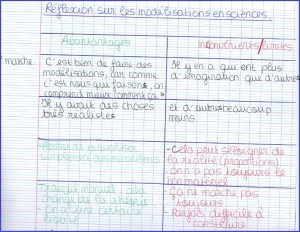 Réflexion sur les modélisations en sciences.
Avantantages
inconvénients/limites
marche
C'est bien de faire des modélisations, car comme c'est nous qui faisons, on comprend mieux comment ça
Il y en a qui ont plus d'imagination que d'autres
Il y avait des choses très réalistes
et d'autres beaucoup moins
- Permet de visualiser simplement
- Cela peut s'éloigner de la réalité (proportions)
- On n'a pas toujours le bon matériel
Travail manuel : cela change de la théorie
- On a une certaine
- Ça ne marche pas toujours
- Parfois difficile à construire